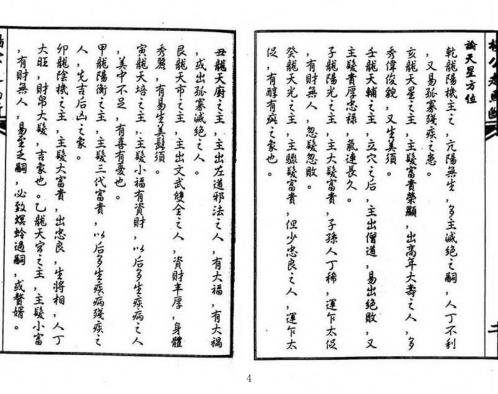 論天星方位
乾龍陽機主之,亢陽無生,多主滅絕之嗣,人丁不利
,又易孤寡殘疾之患。
亥龍天星之主,主發富貴榮顯,出高年大壽之人,多
秀偉俊貌,又生美須。
壬龍天輔之主,立穴之后,主出僧道,易出絕敗,又
主發貴厚忠祿,氣連長久。
子龍陽光之主,主大發富貴,子孫人丁稀,運乍太促
,有財無人,忽發忽敗。
癸龍天光之主,主驟發富貴,但少忠良之人,運乍太
促,有醇有疵之家也。
丑龍天廚之主,主出左道邪法之人,有大福,有大禍
,或出孤寡滅絕之人。
艮龍天市之主,主出文武雙全之人,資財丰厚,身體
秀麗,有易生美髭須。
寅龍天培之主,主發小福有資財,以后多生疾病之人
,美中不足,有喜有憂也。
甲龍陽衡之主,主發三代富貴,以后多生疾病殘疾之
人,先吉后凶之家。
卯龍陰機之主,主發大富貴,出忠良,生將相,人丁
大旺,財帛大發,吉家也。乙龍天官之主,主發小富
,有財無人,易至乏嗣,必致螟蛉過嗣,或贅婿。
4